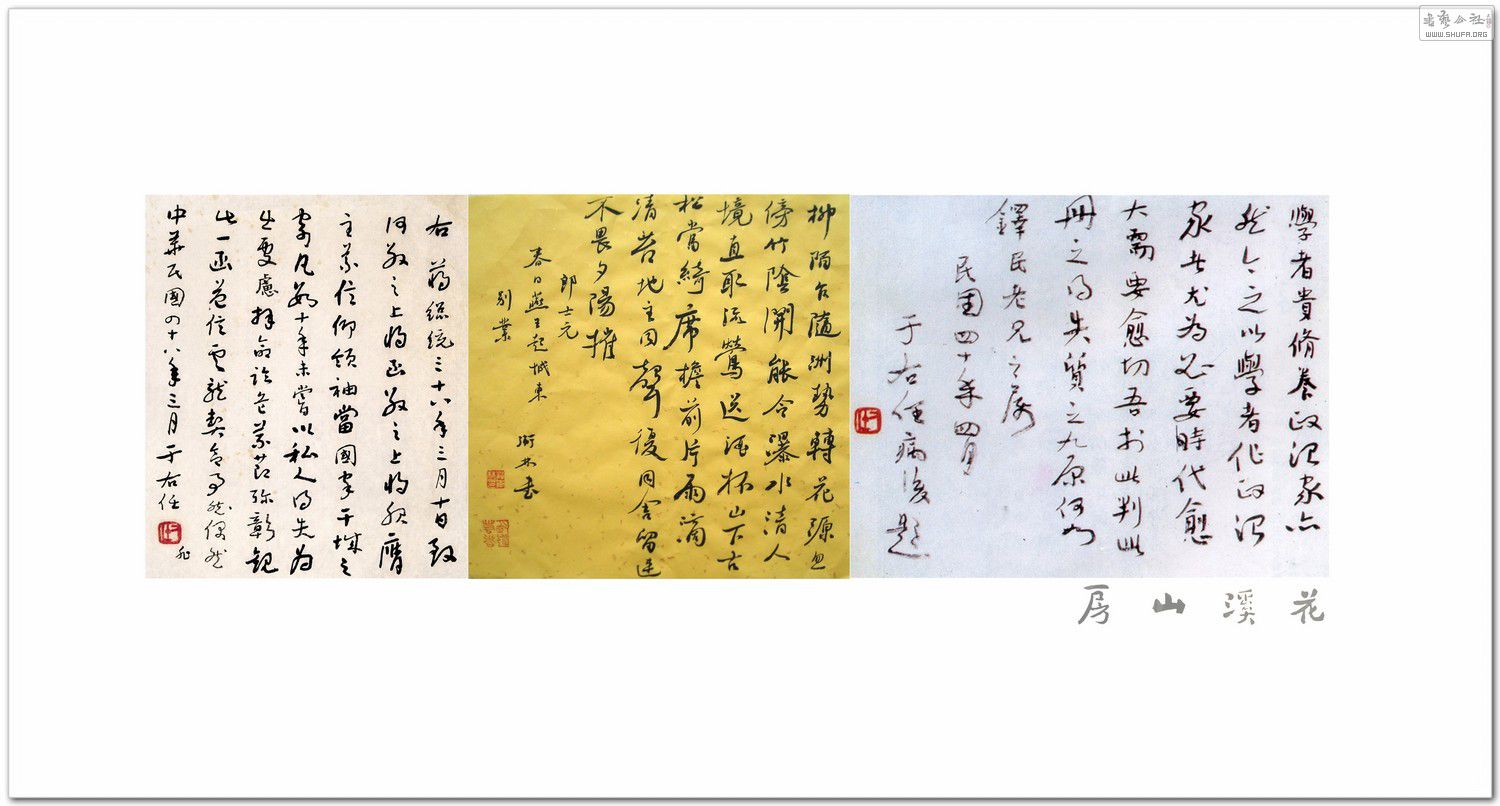 書藝公社
WWW.SHUFA.ORG
學者貴脩養政治家亦
然今之以學者作政治
家者尤為必要時代愈
大需要愈切吾於此判此
冊之得失質之九原何如
鐸民老兄之屬
民國四十年四月
于右任病後題
柳陌乍隨洲勢轉花源忽
傍竹陰開能令瀑水清人
境直取流鶯送酒杯山下古
松當綺席檐前片雨滴
清苔地主同聲復同舍留連
不畏夕陽摧
郎士元
春日燕王起城東
別業
書
右蔣總統三十八年三月十日致
何敬之上將函敬之上將服膺
主義信仰領袖當國家干城之
寄凡數十年未嘗以私人得失為
此一函益信雲龍契合非偶然
中華民國四十八年三月于右任
花溪山房